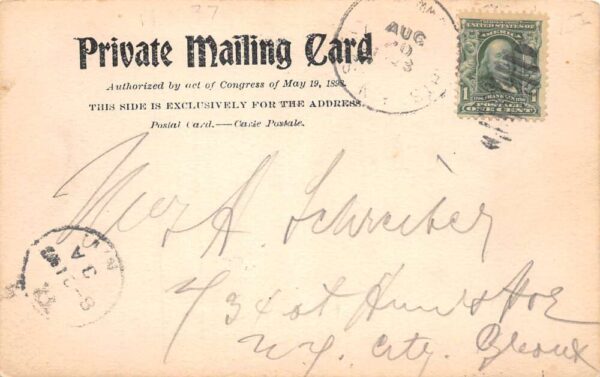 27
Private Mailing Card
Authorized by act of Congress of May 19, 1898.
THIS SIDE IS EXCLUSIVELY FOR THE ADDRESS.
Postal Card.—Carte Postale.
AUG
UNITED STATES OF
AMERICA
1 1
POSTAGE
ONE CENT
A. Schreiber
Ave
N.Y. City. Bronx